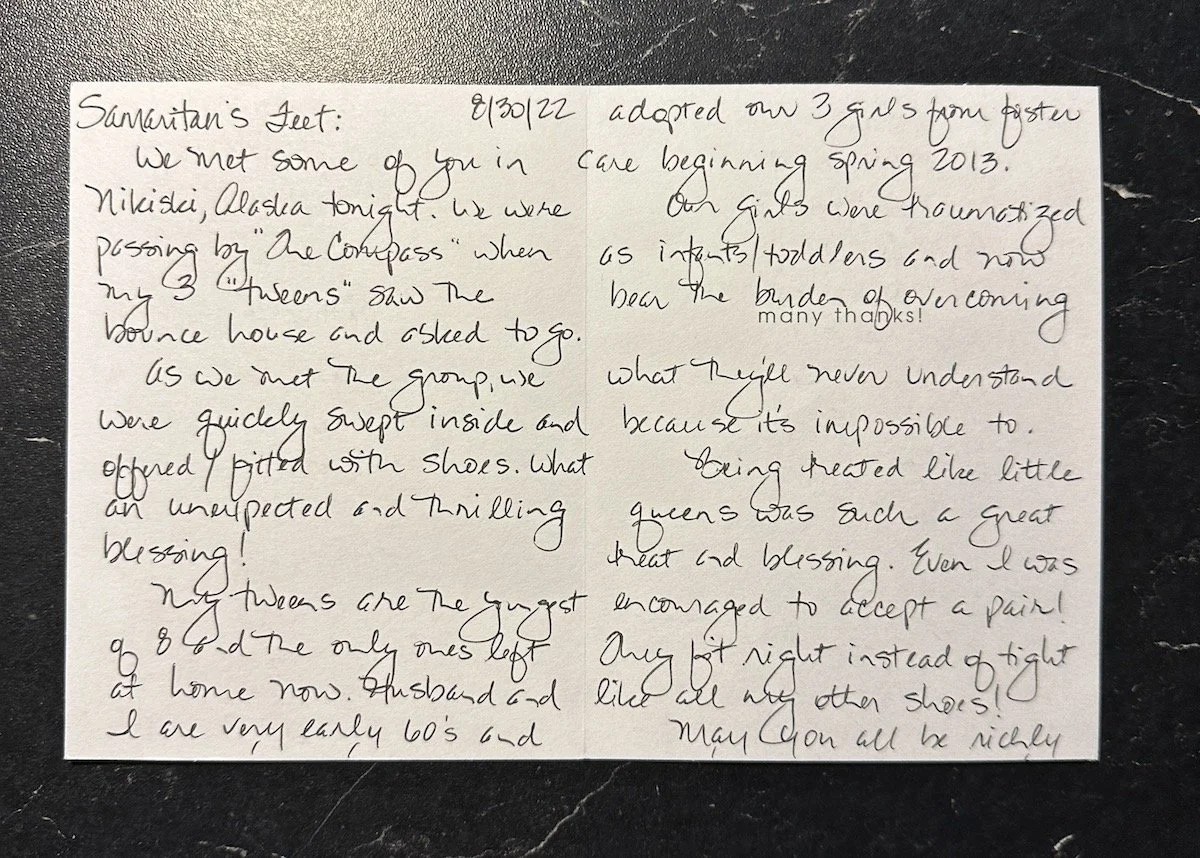 Samaritan's Feet: 8/30/22
We met some of you in
Nikiski, Alaska tonight. We were
passing by "The Compass" when
my 3 "tweens" saw the
bounce house and asked to go.
As we met the group, we
were quickly swept inside and
offered / fitted with shoes. What
an unexpected and thrilling
blessing!
My tweens are the yungest
of 8 and the only ones left
at home now. Husband and
I are very early 60's and
adopted our 3 girls from foster
care beginning spring 2013.
Our girls were traumatized
as infants/toddlers and now
bear the burden of overcoming
many thanks!
what they'll never understand
because it's impossible to.
Being treated like little
queens was such a great
treat and blessing. Even I was
encouraged to accept a pair!
They fit right instead of tight
like all my other shoes!
May you all be richly